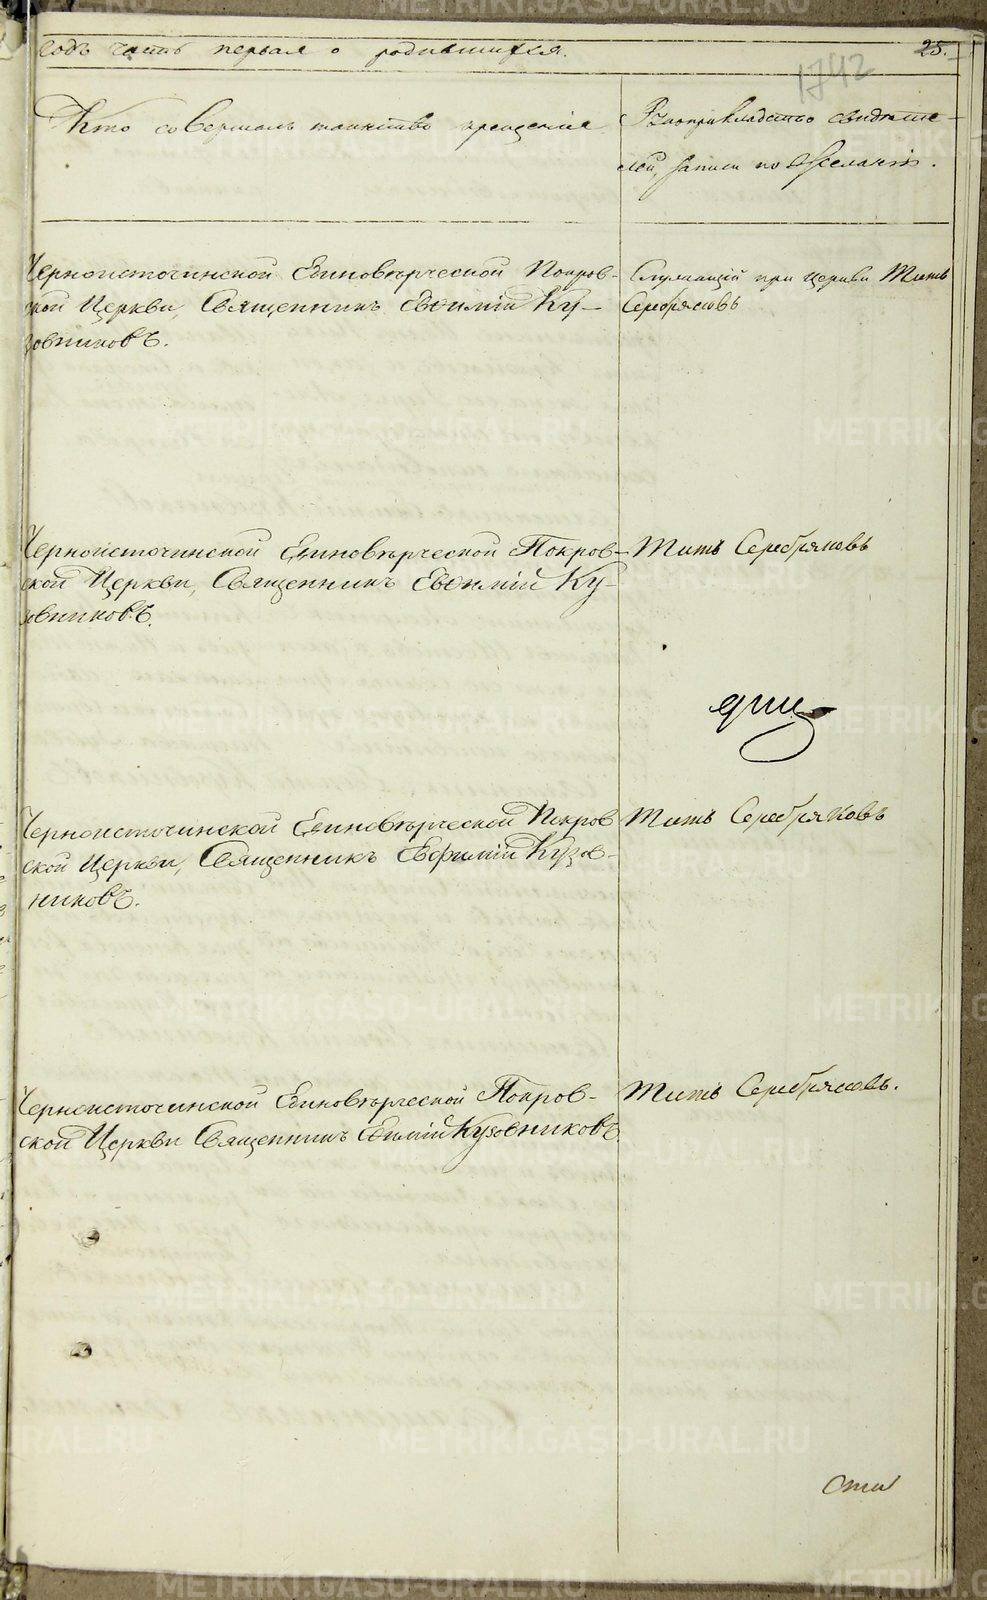 годъ часть первая о родившихся. 25.
1742
Кто совершалъ таинство крещенія
Рукоприкладство свидѣте-
лей записи по желанію.
Черноисточинской Единовѣрческой Покров-
ской Церкви, Священникъ Евѳимій Ку-
зовниковъ.
Служащій при церкви Титъ
Серебряковъ
Черноисточинской Единовѣрческой Покров-
ской Церкви, Священникъ Евѳимій Ку-
зовниковъ.
Титъ Серебряковъ
Черноисточинской Единовѣрческой Покров
ской Церкви, Священникъ Евфимій Кузов-
никовъ.
Титъ Серебряковъ
Черноисточинской Единовѣрческой Покров-
ской Церкви Священникъ Евѳимій Кузовниковъ
Титъ Серебряковъ.
METRIKI.GASO-URAL.RU